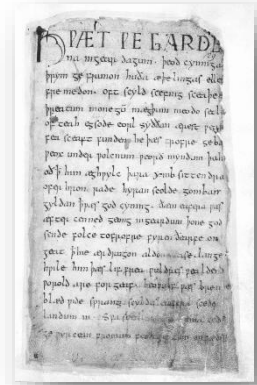 HǷÆT ǷE GARDE
na ingear dagum . þeod cyninga
þrym ge frunon huða æþelingas elle
fre medon . oft scyld scefing sceaþe
þreatum monegū mægþum meodo setl
of teah egsode eorl syððan ærest
fea sceaft funden he þæs frofre geba
ƿeox under ƿolcnum ƿeorð myndum þah
oð ꝥ him æghƿylc þara ymb sittendra
ofer hron rade hyran scolde gomban
gyldan ꝥ ƿæs god cyning . ðæm eafera ƿæs
æfter cenned geong ingeardum þone god
sende folce tofrofre fyren ðearfe on
geat ꝥ hie ær drugon aldor ase . lange
hƿile him þæs lif frea ƿuldres ƿealdend
ƿorold are for geaf . beoƿulf ƿæs breme
blæd ƿide sprang scyldes eafera scede
landum in .